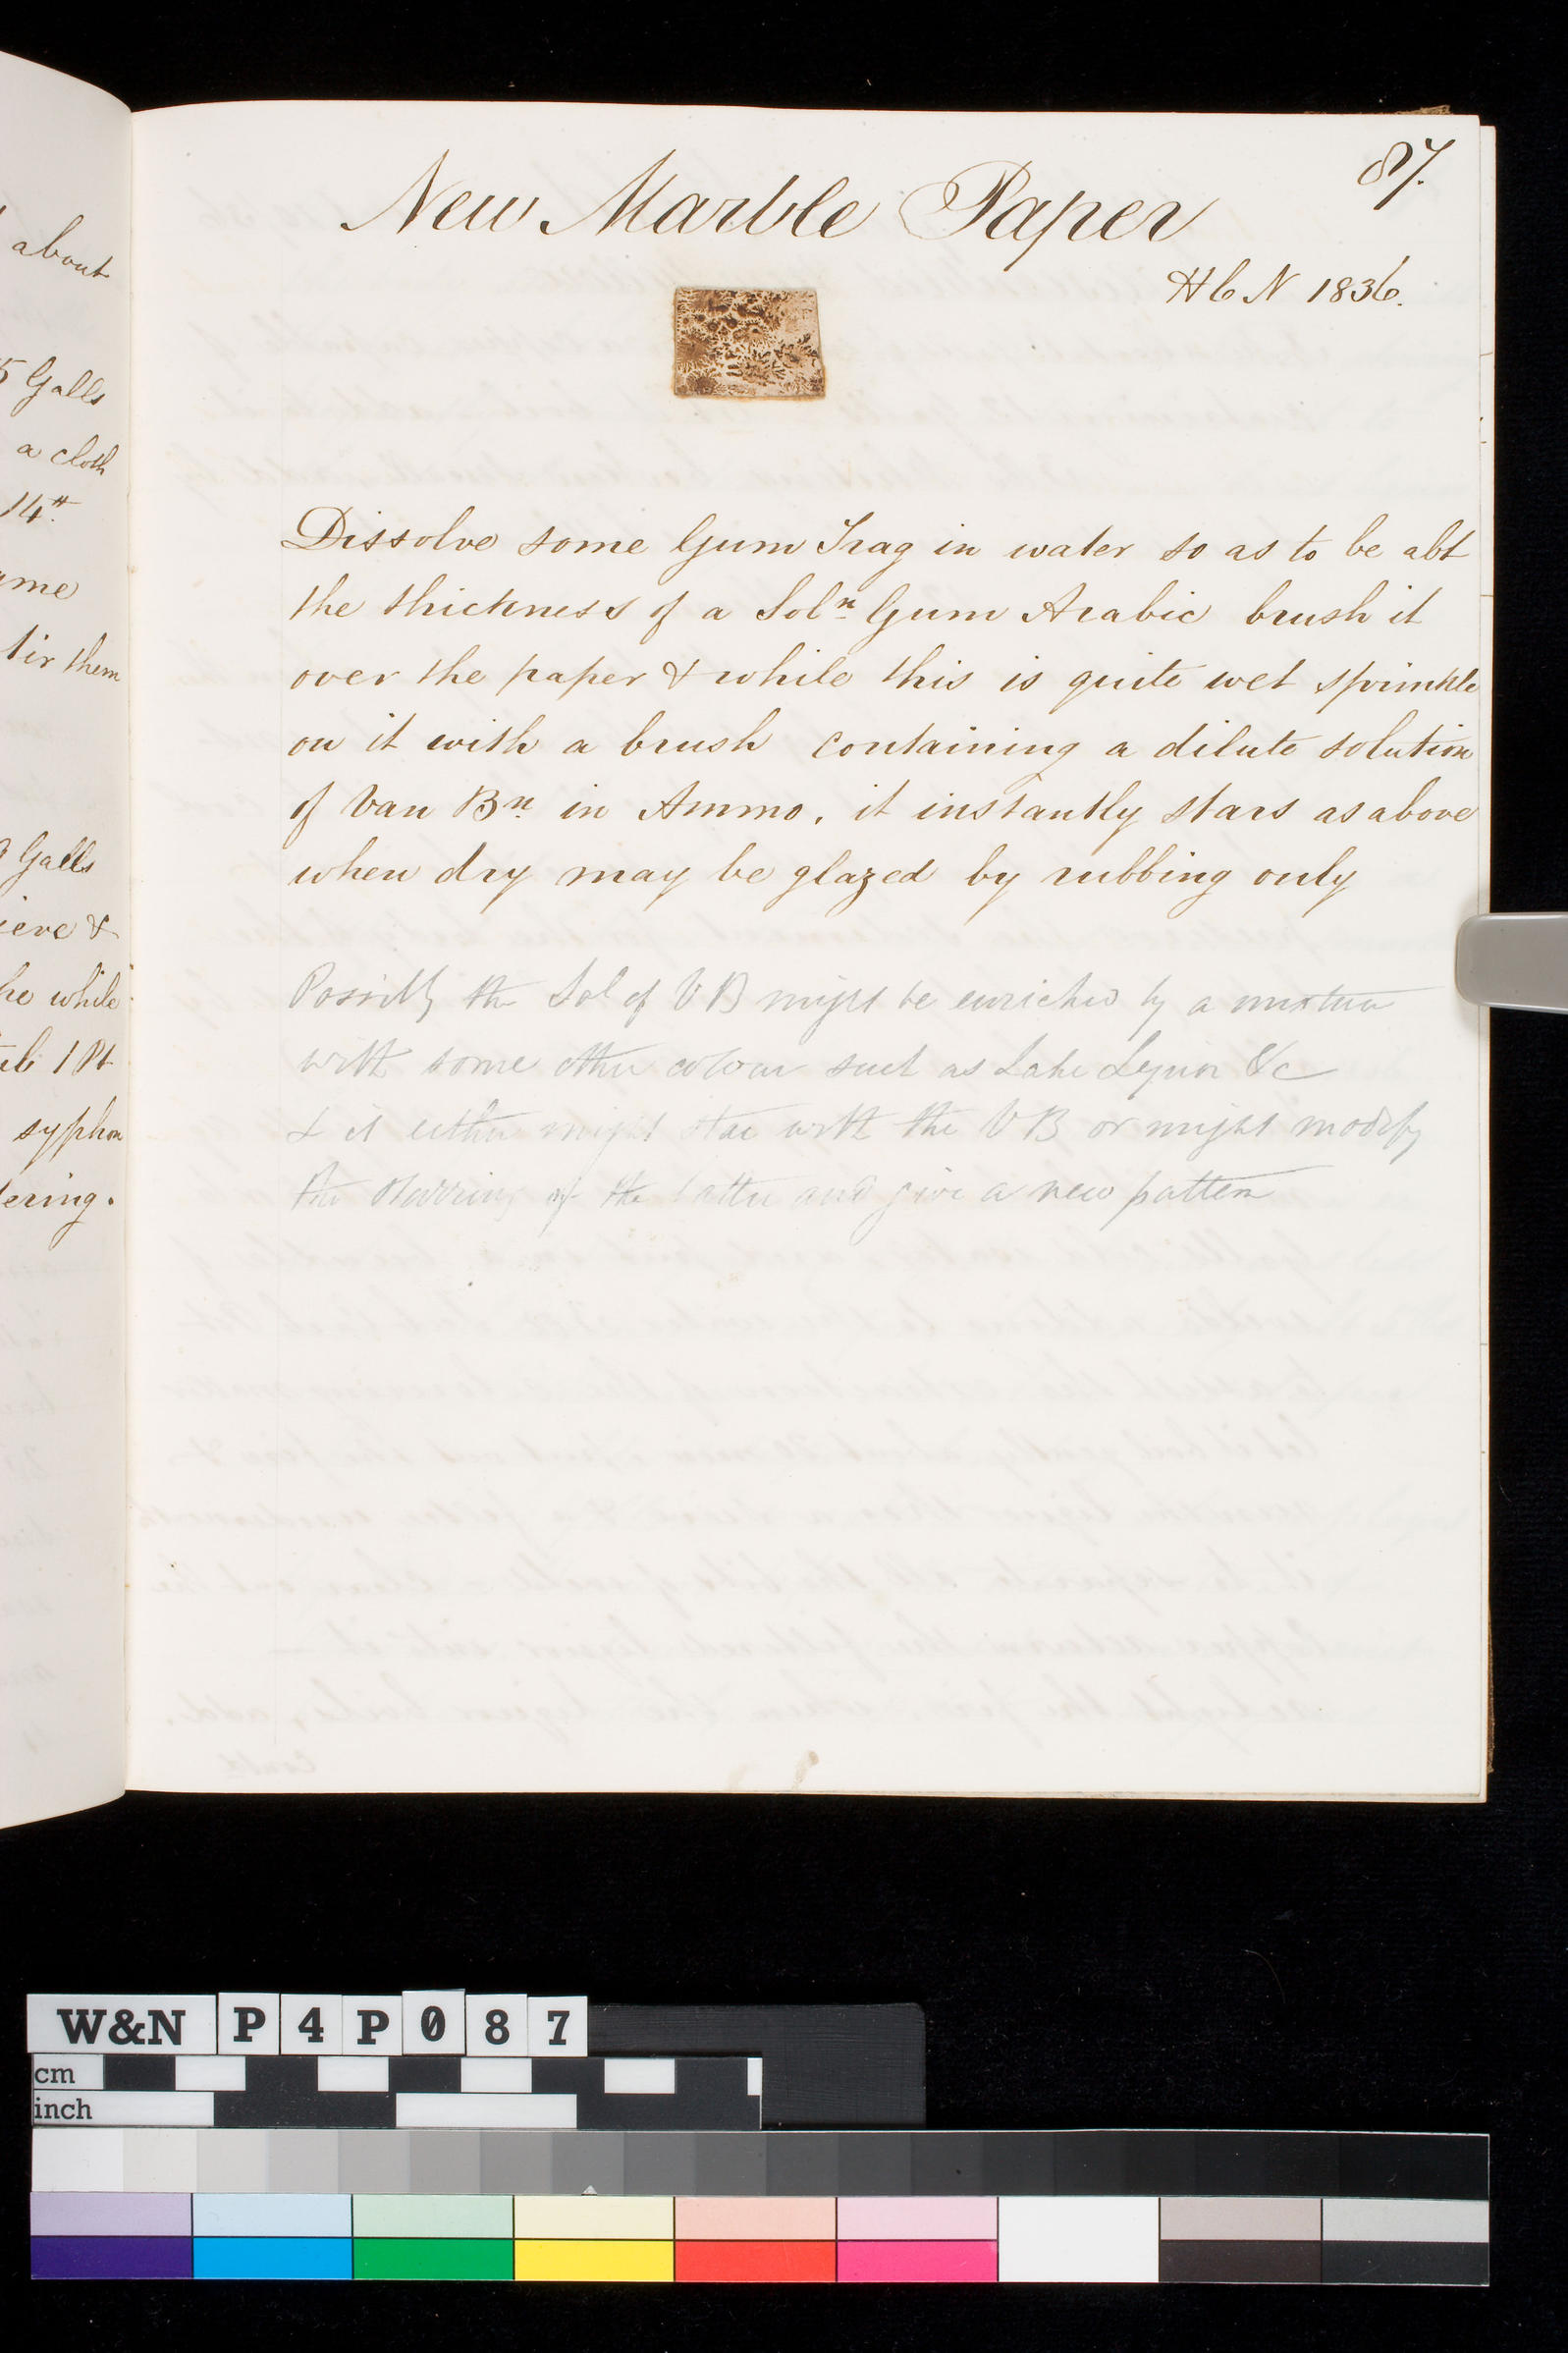 about
5 Galls
a cloth
14#.
me
tir them
Galls
ieve &
he while
ub 1 Pt
syphon
tering.
87.
New Marble Paper
HCN 1836.
Dissolve some Gum Trag in water so as to be abt
the thickness of a Soln Gum Arabic brush it
over the paper & while this is quite wet sprinkle
on it with a brush containing a dilute solution
of Van Bn in Ammo, it instantly stars as above
when dry may be glazed by rubbing only
Possibly the Sol of VB might be enriched by a mixture
with some other colour such as Lake Liquor &c
& it either might star with the VB or might modify
the starring of the latter and give a new pattern
W&N P4P087
cm
inch